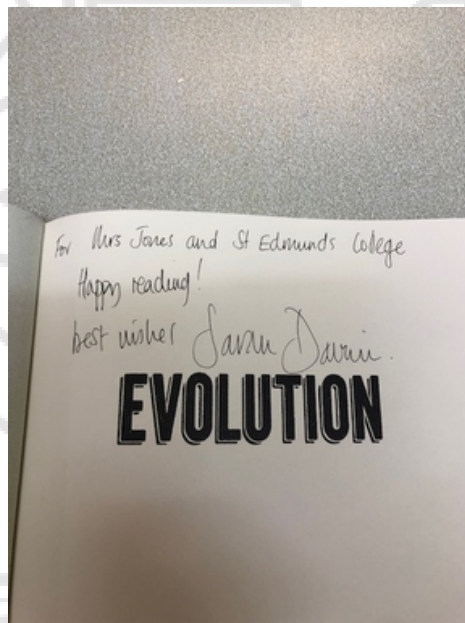 For Mrs Jones and St Edmunds College
Happy reading!
best wishes Sarah Darwin.
EVOLUTION